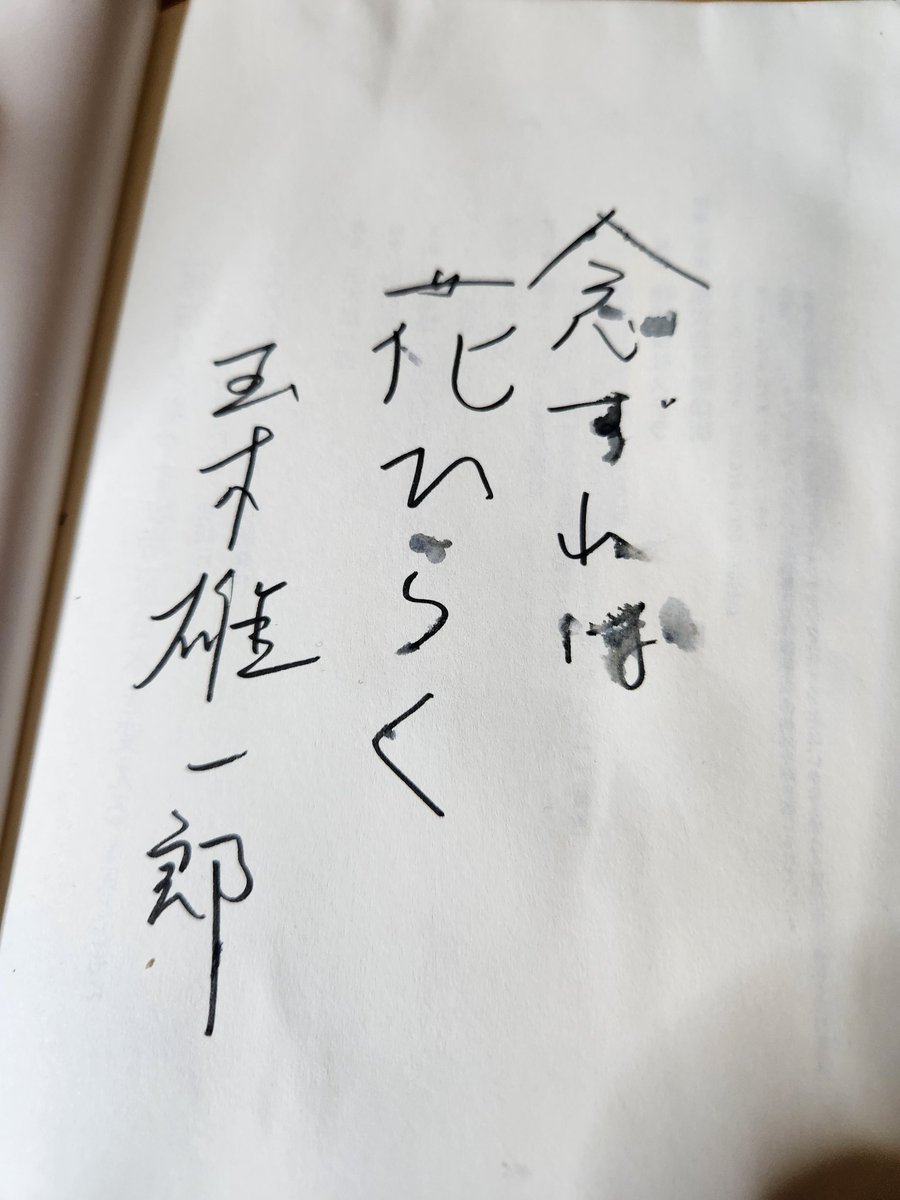 念ずれば
花ひらく
玉木雄一郎